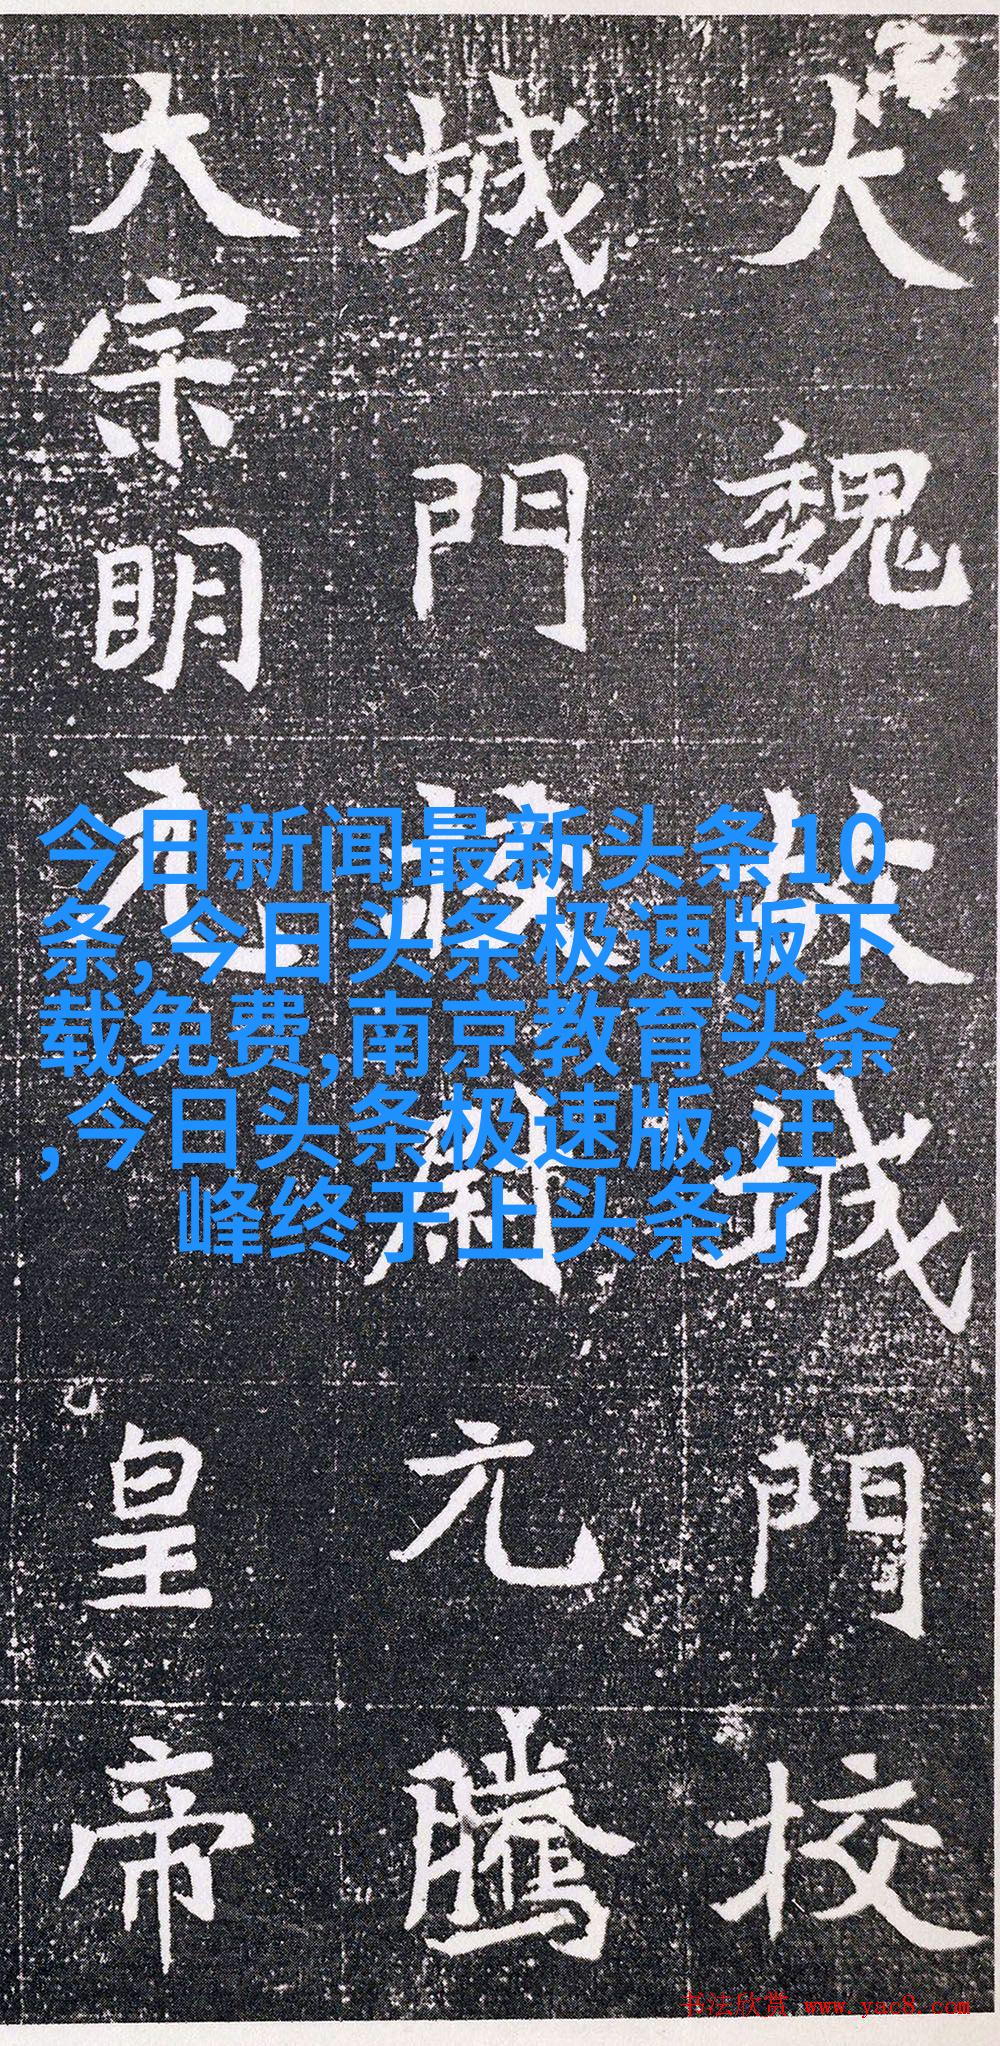 大魏故城門校
城門校尉元騰
大宗明元皇帝
今日新闻最新头条10
条,今日头条极速版下
载免费,南京教育头条
,今日头条极速版,汪
峰终于上头条了
书法欣赏 www.yac8.com